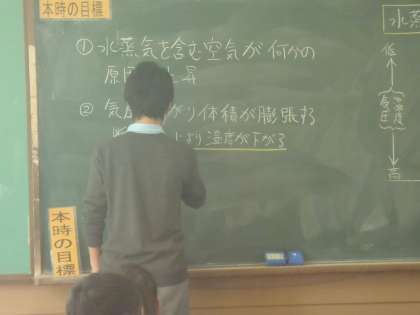 本時の目標
①水蒸気を含む空気が何分の
原 上昇
②気 がり体積が膨張する
より温度が下がる
本時の目標
水蒸
低
気圧
高